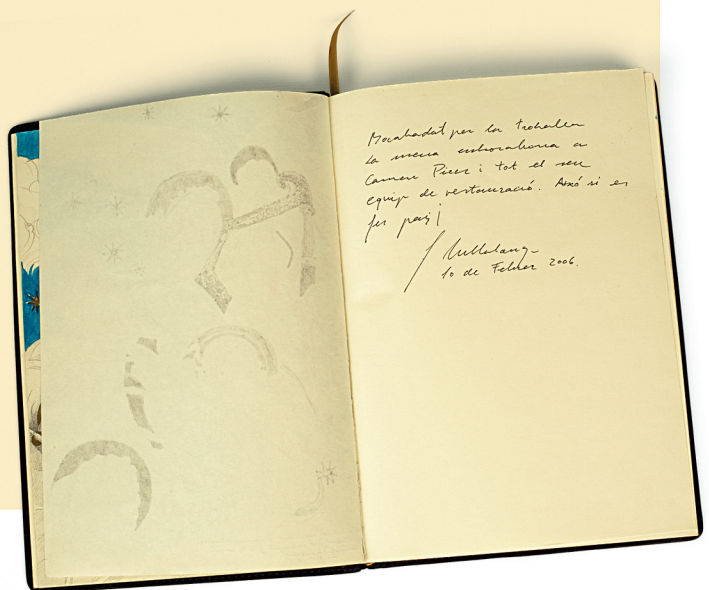 Marabadat per la troballa
La meua enhorabuena a
Carmen Perez i tot el seu
equip de restauració. Això si es
fer país!
10 de Febrer 2006.